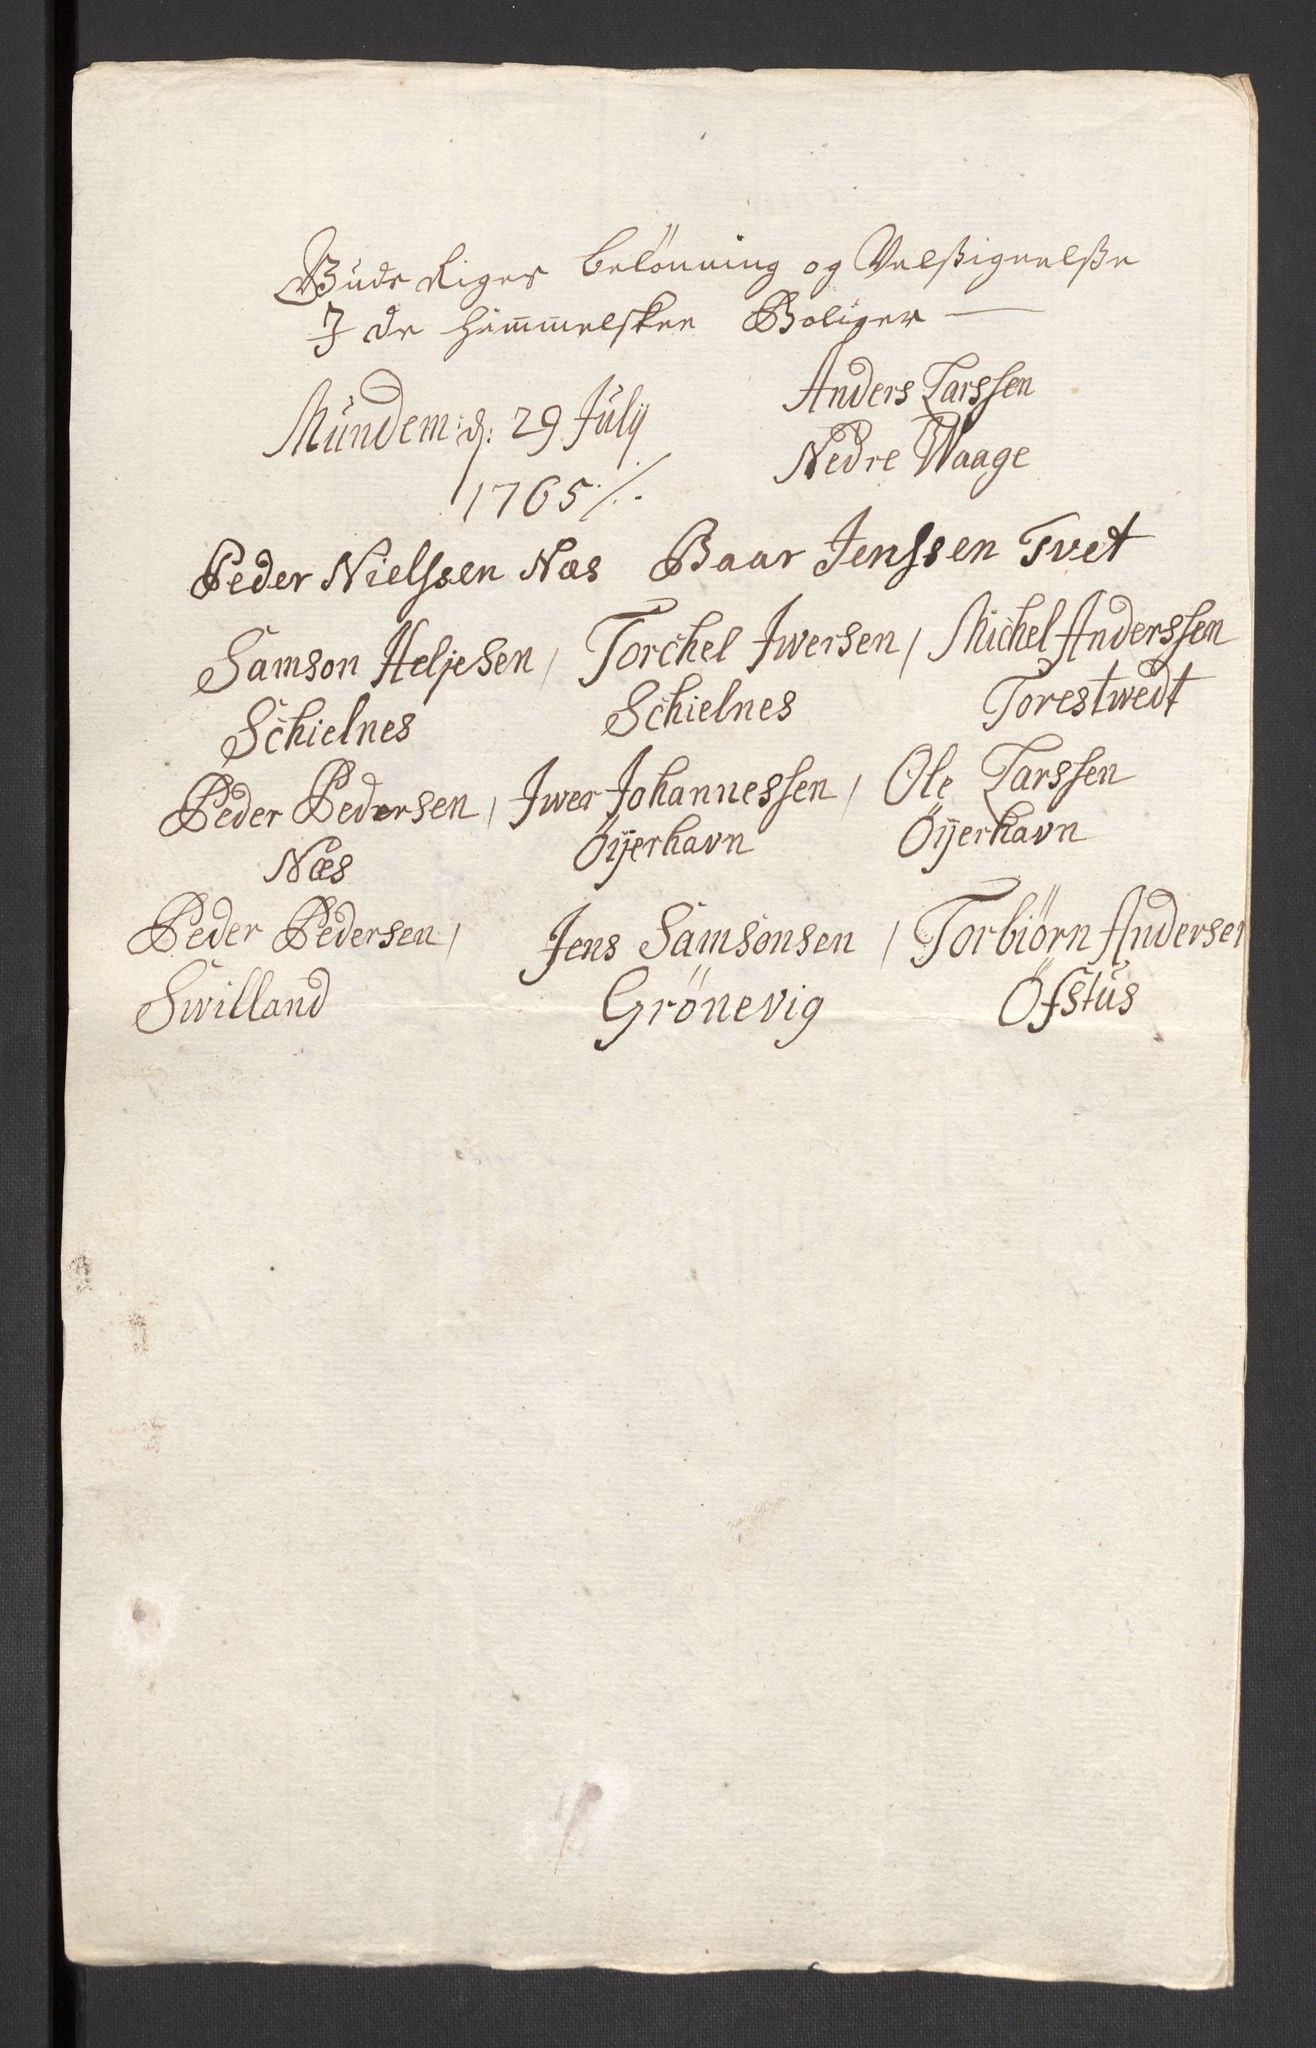 Guds Riges belönning og Velßignelße
I de himmelskee Boliger —
Mundem: d: 29 July
1765 /.
Anders Larssen
Nedre Waage
Peder Nielssen Næs Baar Jenssen Tvet
Samson Heljesen / Torchel Iwersen / Michel Anderssen
Schielnes Schielnes Torestwedt
Peder Pedersen / Iwer Johannessen / Ole Larssen
Næs Öijerhavn Öijerhavn
Peder Pedersen / Jens Samsonsen / Torbiörn Andersen
Swilland Grönevig Öfstus